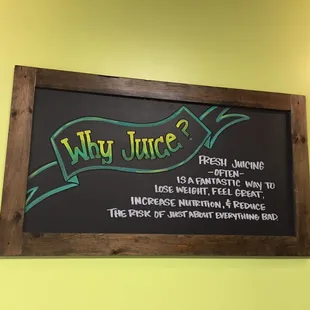 Why Juice?
FRESH JUICING
-OFTEN-
IS A FANTASTIC WAY TO
LOSE WEIGHT, FEEL GREAT,
INCREASE NUTRITION, & REDUCE
THE RISK OF JUST ABOUT EVERYTHING BAD